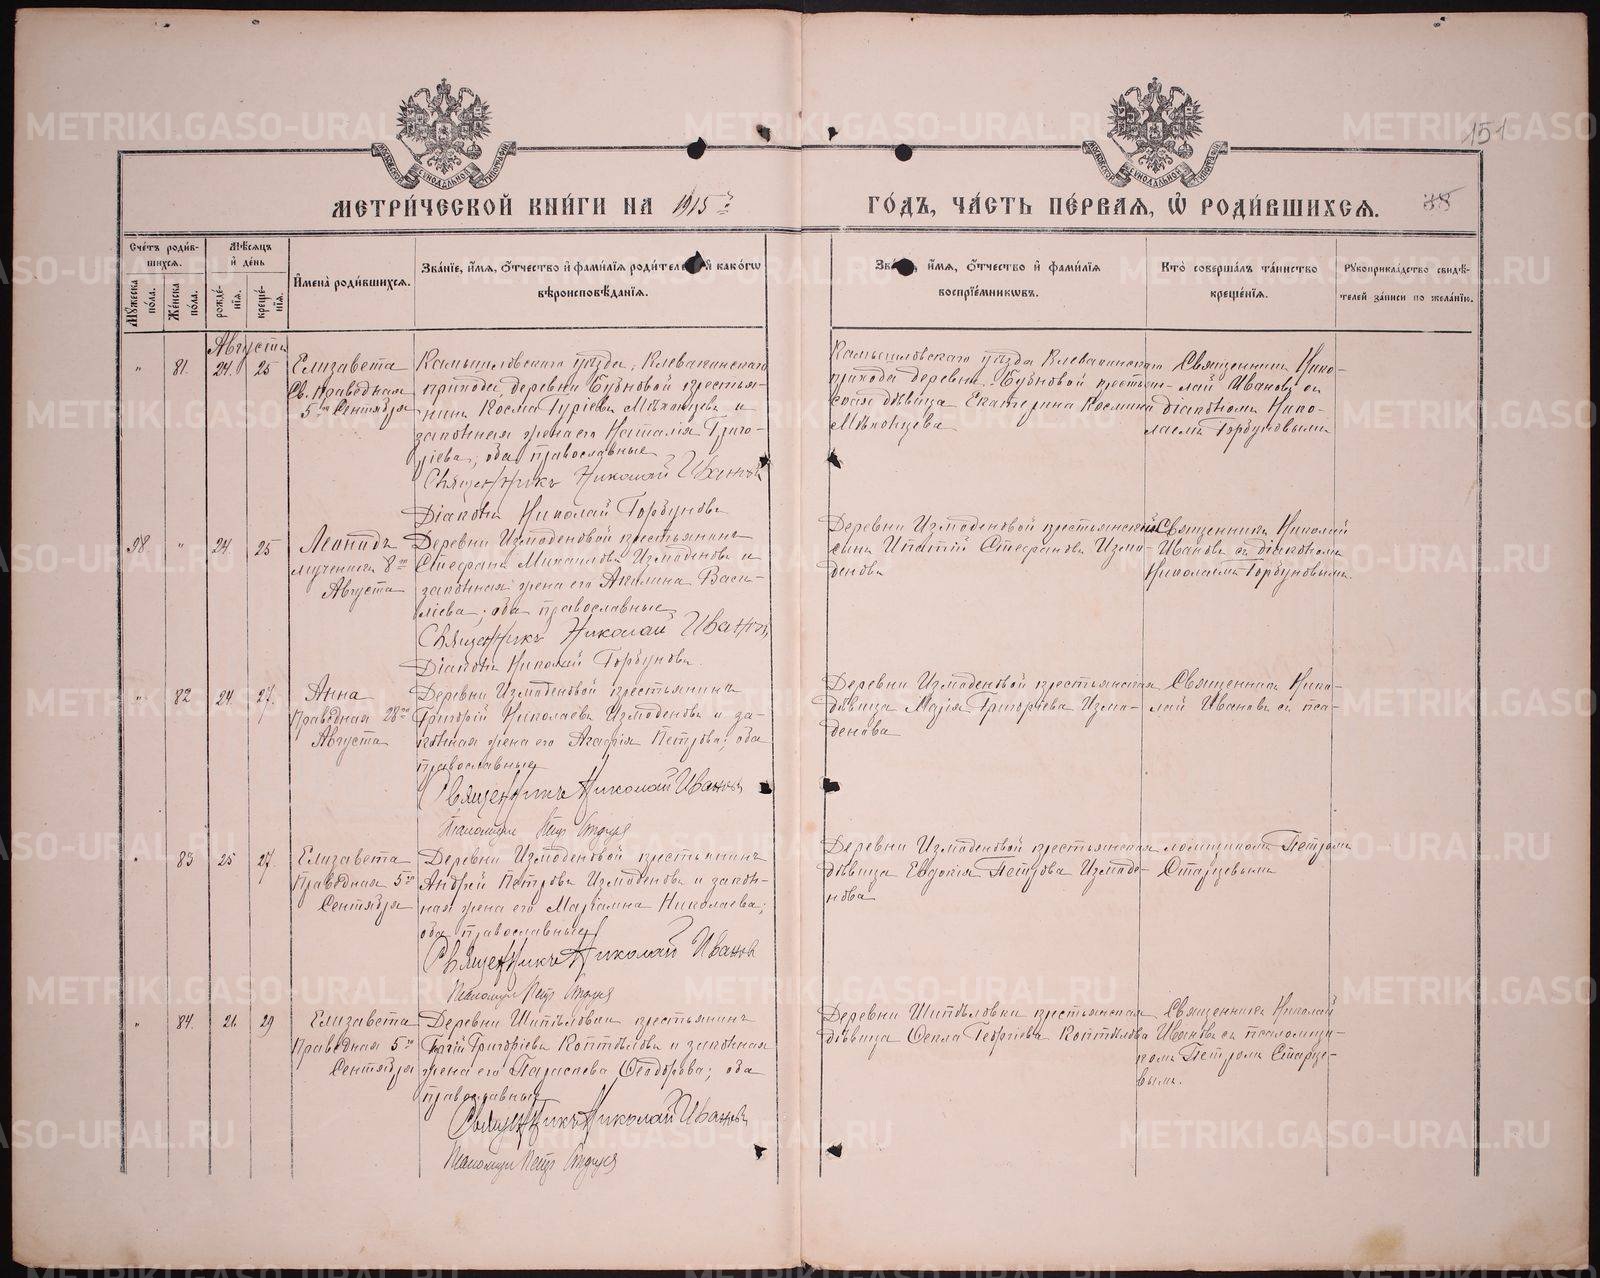 151
МОСКОВСКОЙ СѴНОДАЛЬНОЙ ТИПОГРАФІИ
МОСКОВСКОЙ СѴНОДАЛЬНОЙ ТИПОГРАФІИ
МЕТРИ́ЧЕСКОЙ КНИ́ГИ НА 1915 го́
ГО́ДЪ, ЧА́СТЬ ПЕ́РВАЯ, Ѡ РОДИ́ВШИХСЯ.
38
Сче́тъ роди́в-
шихся.
Мꙋ́жеска по́ла.
Же́нска по́ла.
Мѣ́сяцъ
и҆ де́нь
рожде́-
нїя.
креще́-
нїя.
И҆мена̀ роди́вшихся.
Зва́нїе, и҆́мя, ѻ҆́тчество и҆ фами́лїя роди́телей и҆ како́гѡ
вѣроисповѣ́данїя.
и҆́мя, ѻ҆́тчество и҆ фами́лїя
воспрїе́мниковъ.
Кто̀ соверша́лъ та́инство
креще́нїя.
Рꙋкоприкла́дство свидѣ́-
телей за́писи по жела́нїю.
Августа
" 81. 24. 25
Елизавета
Св. Праведная
5го Сентября
Камышловскаго уѣзда, Клевакинскаго
прихода деревни Бубновой крестья-
нинъ Косма Гуріевъ Мѣхонцевъ и
законная жена его Наталія Григо-
ріева; оба православные
Священникъ Николай Ивановъ
Діаконъ Николай Горбуновъ
Камышловскаго уѣзда Клевакинскаго
прихода деревни Бубновой крестьян-
ская дѣвица Екатерина Космина
Мѣхонцева
Священникъ Нико-
лай Ивановъ съ
діакономъ Нико-
лаемъ Горбуновымъ
98. " 24 25
Леонидъ
мученикъ 8го
Августа
Деревни Измоденовой крестьянинъ
Стефанъ Михаиловъ Измоденовъ и
законная жена его Акилина Васи-
ліева; оба православные
Священникъ Николай Ивановъ,
Діаконъ Николай Горбуновъ.
Деревни Измоденовой крестьянскій
сынъ Ипатій Стефановъ Измо-
деновъ
Священникъ Николай
Ивановъ съ діакономъ
Николаемъ Горбуновымъ.
" 82 24 27.
Анна
Праведная 28го
Августа
Деревни Измоденовой крестьянинъ
Григорій Николаевъ Измоденовъ и за-
конная жена его Агафія Петрова; оба
православные
Священникъ Николай Ивановъ
Псаломщикъ Петръ
Деревни Измоденовой крестьянская
дѣвица Марія Григоріева Измо-
денова
Священникъ Нико-
лай Ивановъ съ пса-
" 83 25 27.
Елизавета
Праведная 5го
Сентября
Деревни Измоденовой крестьянинъ
Андрей Петровъ Измоденовъ и закон-
ная жена его Маріамна Николаева;
оба православные
Священникъ Николай Ивановъ
Псаломщикъ Петръ
Деревни Измоденовой крестьянская
дѣвица Евдокія Петрова Измоде-
нова
ломщикомъ Петромъ
Старцевымъ
" 84. 21. 29
Елизавета
Праведная 5го
Сентября
Деревни Шипѣловки крестьянинъ
Григоріевъ Коптѣловъ и законная
жена его Параскева Ѳеодорова; оба
православные
Священникъ Николай Ивановъ
Псаломщикъ Петръ
Деревни Шипѣловки крестьянская
дѣвица Ѳекла Георгіева Коптѣлова
Священникъ Николай
Ивановъ съ псаломщи-
комъ Петромъ Старце-
вымъ.
METRIKI.GASO-URAL.RU